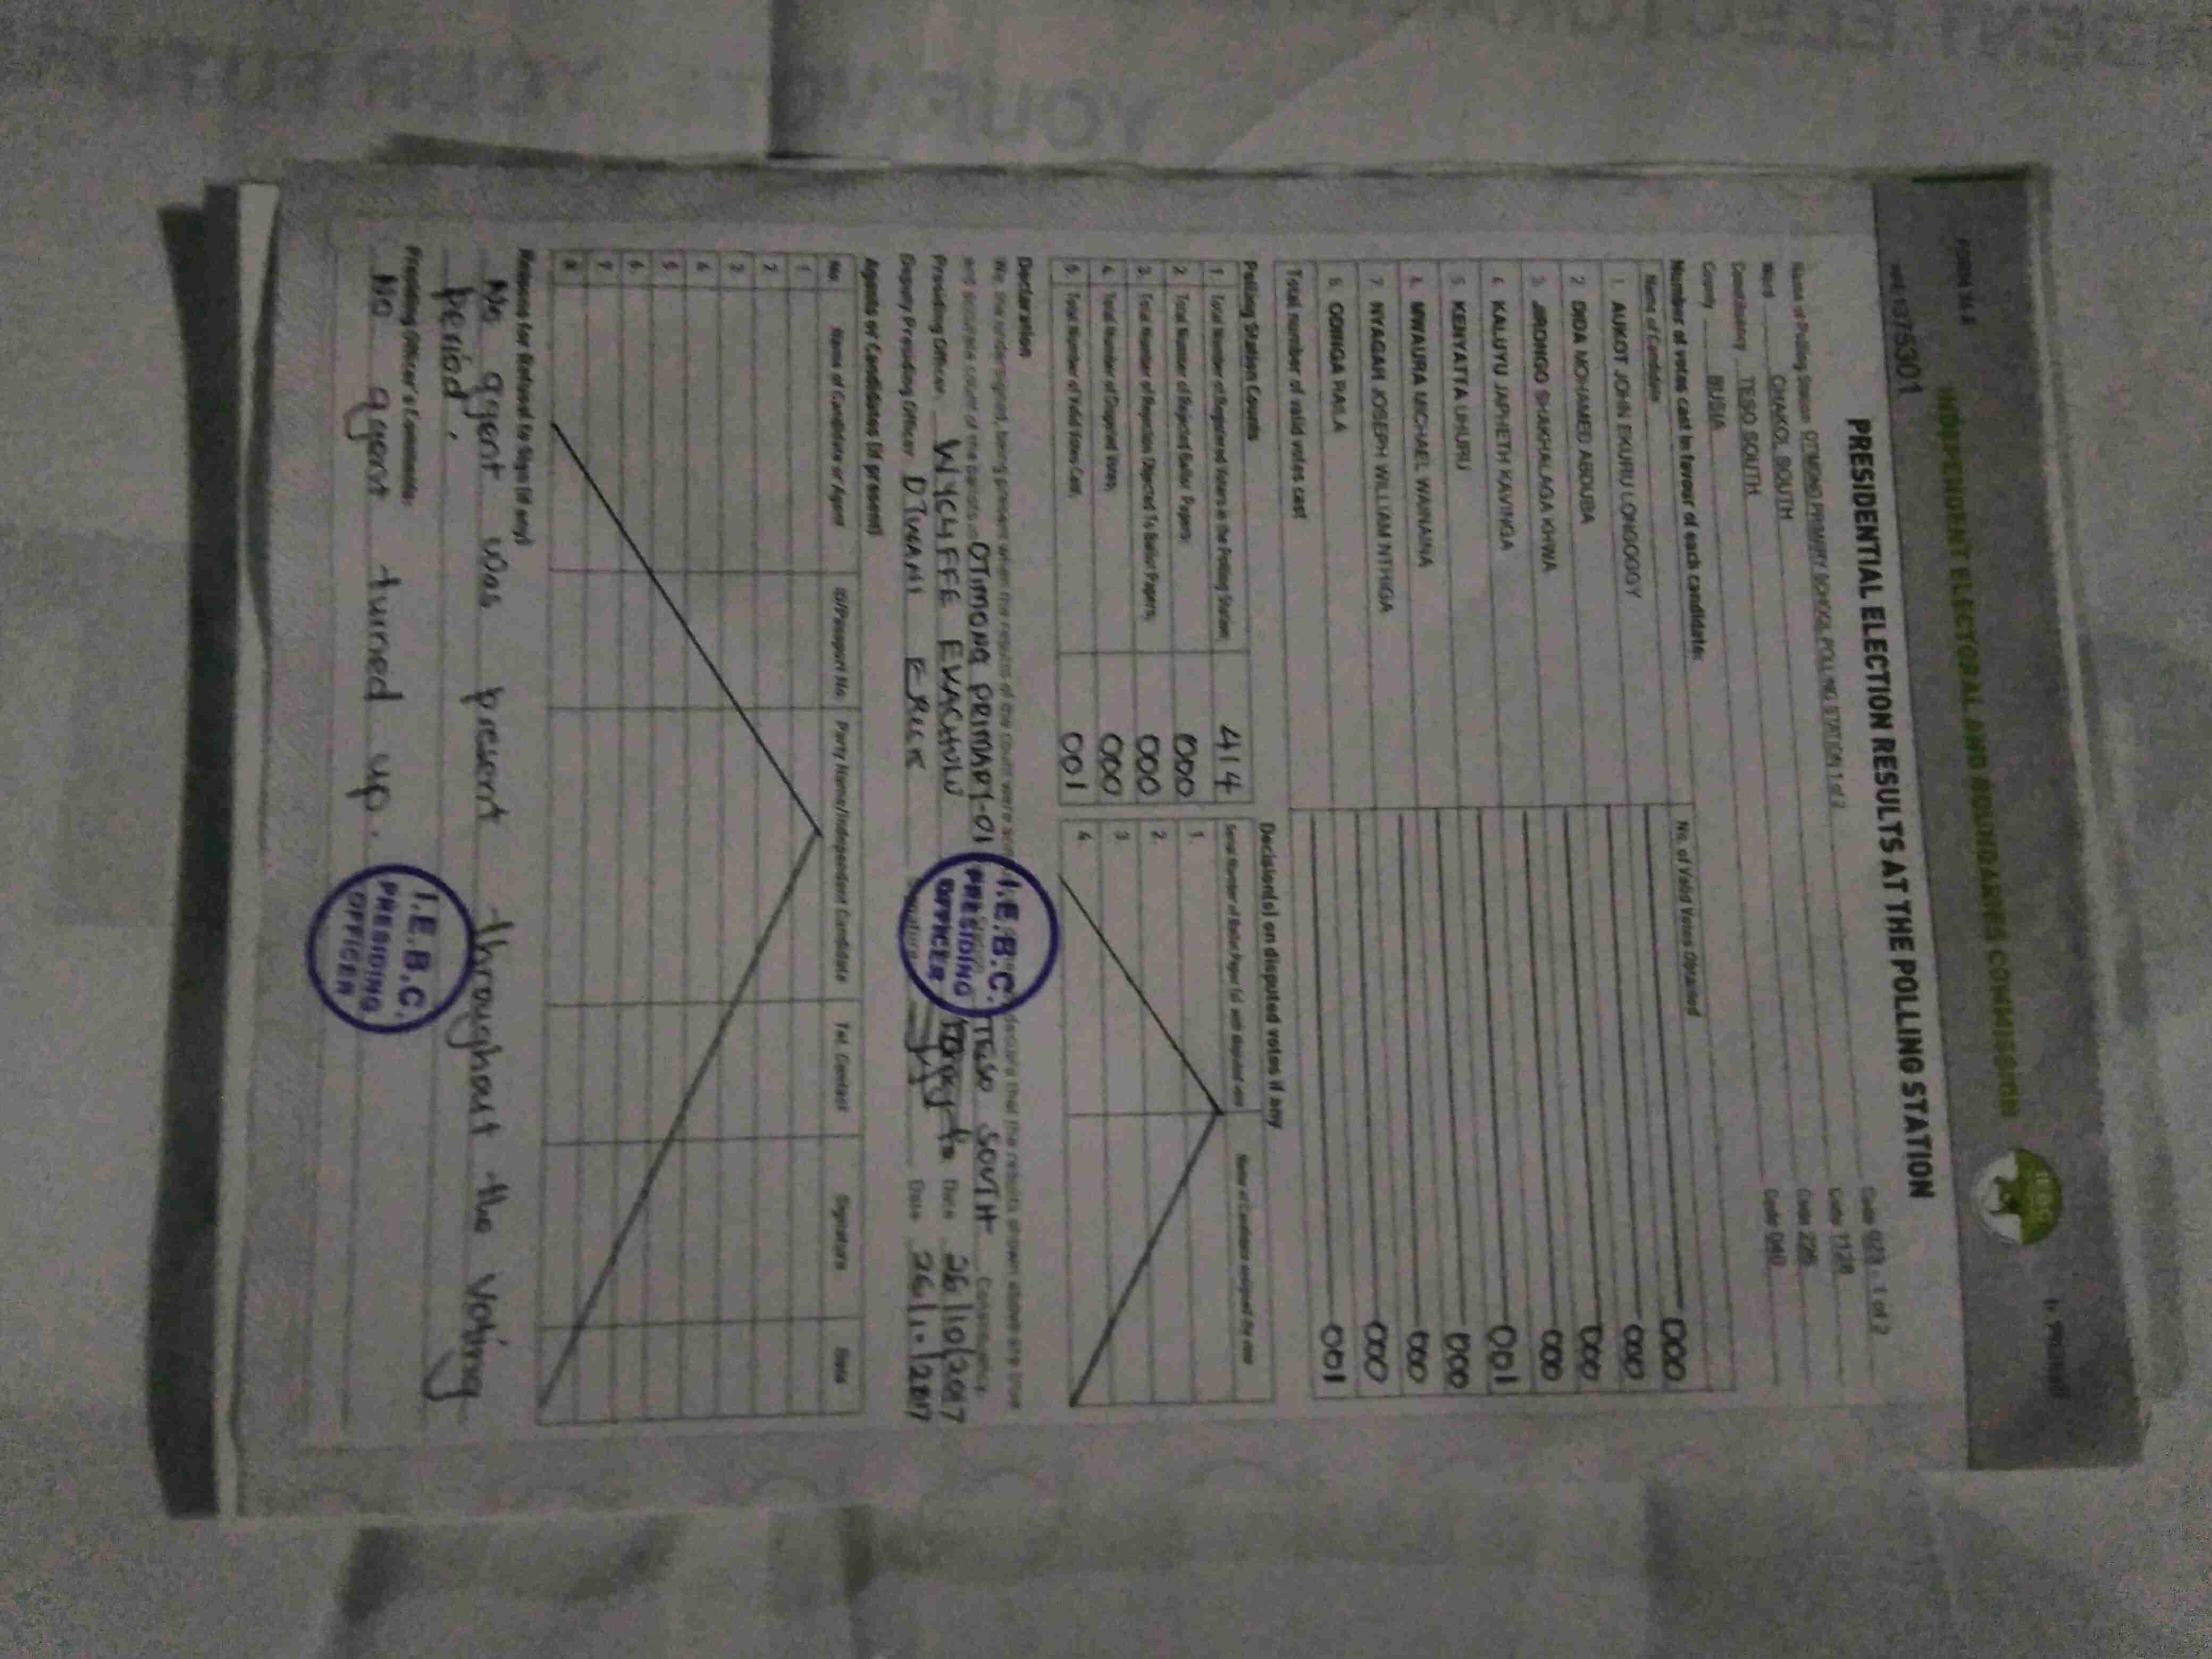 INDEPENDENT ELECTORAL AND BOUNDARIES COMMISSION
FORM 34 A
1375301
PRESIDENTIAL ELECTION RESULTS AT THE POLLING STATION
Name of Polling Station OTIMONG PRIMARY SCHOOL POLLING STATION 1 of 2 Code 023 - 1 of 2
Ward CHAKOL SOUTH Code 1128
Constituency TESO SOUTH Code 226
County BUSIA Code 040
Number of votes cast in favour of each candidate:
Name of Candidate No. of Valid Votes Obtained
1. AUKOT JOHN EKURU LONGOGGY 000
2 DIDA MOHAMED ABDUBA 000
3. JIRONGO SHAKHALAGA KHWA 000
4 KALUYU JAPHETH KAVINGA 000
5 KENYATTA UHURU 001
6. MWAURA MICHAEL WAINAINA 000
7 NYAGAH JOSEPH WILLIAM NTHIGA 000
8. ODINGA RAILA 000
Total number of valid votes cast 001
Polling Station Counts
1. Total Number of Registered Voters in the Polling Station; 414
2. Total Number of Rejected Ballot Papers; 000
3. Total Number of Rejection Objected To Ballot Papers; 000
4. Total Number of Disputed Votes; 000
5. Total Number of Valid Votes Cast; 001
Decision(s) on disputed votes if any
Serial Number of Ballot Paper (s) with disputed votes Name of Candidate assigned the vote
1.
2.
3
4
Declaration
We, the undersigned, being present when the results of the count were declare that the results shown above are true
and accurate count of the ballots in OTIMONG PRIMARY-01 TESO SOUTH Constituency.
Presiding Officer WYCLIFFE Date 26/10/2017
Deputy Presiding Officer Date 26/10/2017
I.E.B.C.
PRESIDING
OFFICER
Agents or Candidates (if present)
No. Name of Candidate or Agent ID/Passport No. Party Name/Independent Candidate Tel. Contact Signature Date
1
2
3
4
5
6
7
8
Reasons for Refusal to Sign (if any)
No agent was present throughout the voting
period.
Presiding Officer's Comments:
No agent turned up.
I.E.B.C.
PRESIDING
OFFICER